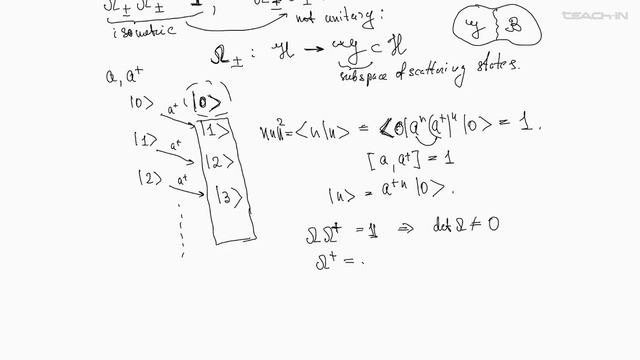 Ω± Ω±
isometric
not unitary:
Ω± : ℋ → 𝒴 ⊂ ℋ
subspace of scattering states.
𝒴 B
TEACH-IN
a, a⁺
|0> a⁺ |0>
|1> a⁺ |1>
|2> a⁺ |2>
|3>
‖n‖²=<n|n> = <0|aⁿ(a⁺)ⁿ|0> = 1.
[a, a⁺] = 1
|n> = a⁺ⁿ |0>.
ΩΩ⁺ = 𝟙 ⇒ det Ω ≠ 0
Ω⁺ = .